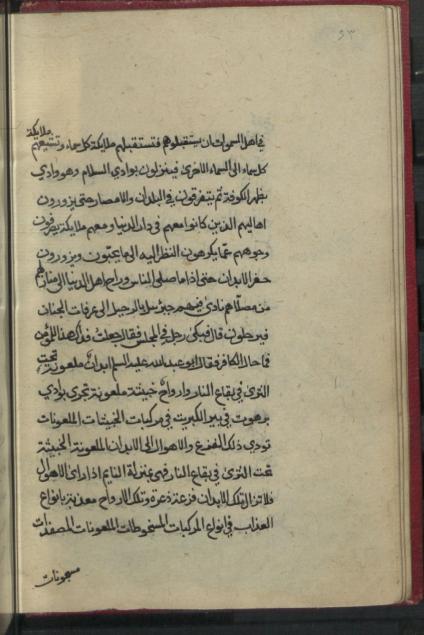 ٩٣
في اهل السموات ان يستقبلوهم فتستقبلهم ملايكة كل سماء وتشيعهم ملايكة
كل سماء الى السماء الاخرى فينزلون بوادي السلام وهو وادي
بظهر الكوفة ثم يتفرقون في البلدان والامصار حتى يزورون
اهاليهم الذين كانوا معهم في دار الدنيا ومعهم ملايكة يصرفون
وجوههم عما يكرهون النظر اليه الى ما يحبون ويزورون
حفر الابدان حتى اذا ما صلى الناس وراح اهل الدنيا الى منازلهم
من مصلاهم نادى فيهم جبرئيل بالرحيل الى غرفات الجنان
فيرحلون قال فبكى رجل في المجلس فقال جعلت فداك هذا للمؤمن
فما حال الكافر فقال ابو عبدالله عليه السلم ابدان ملعونة تحت
الثرى في بقاع النار وارواح خبيثة ملعونة تجري بوادي
برهوت في بير الكبريت في مركبات الخبيثات الملعونات
تودي ذلك الفزع والاهوال الى الابدان الملعونة الخبيثة
تحت الثرى في بقاع النار فهي بمنزلة النايم اذا راى الاهوال
فلا تزال تلك الابدان فزعة ذعرة وتلك الارواح معذبة بانواع
العذاب في انواع المركبات المسخوطات الملعونات المصفدات
مسجونات